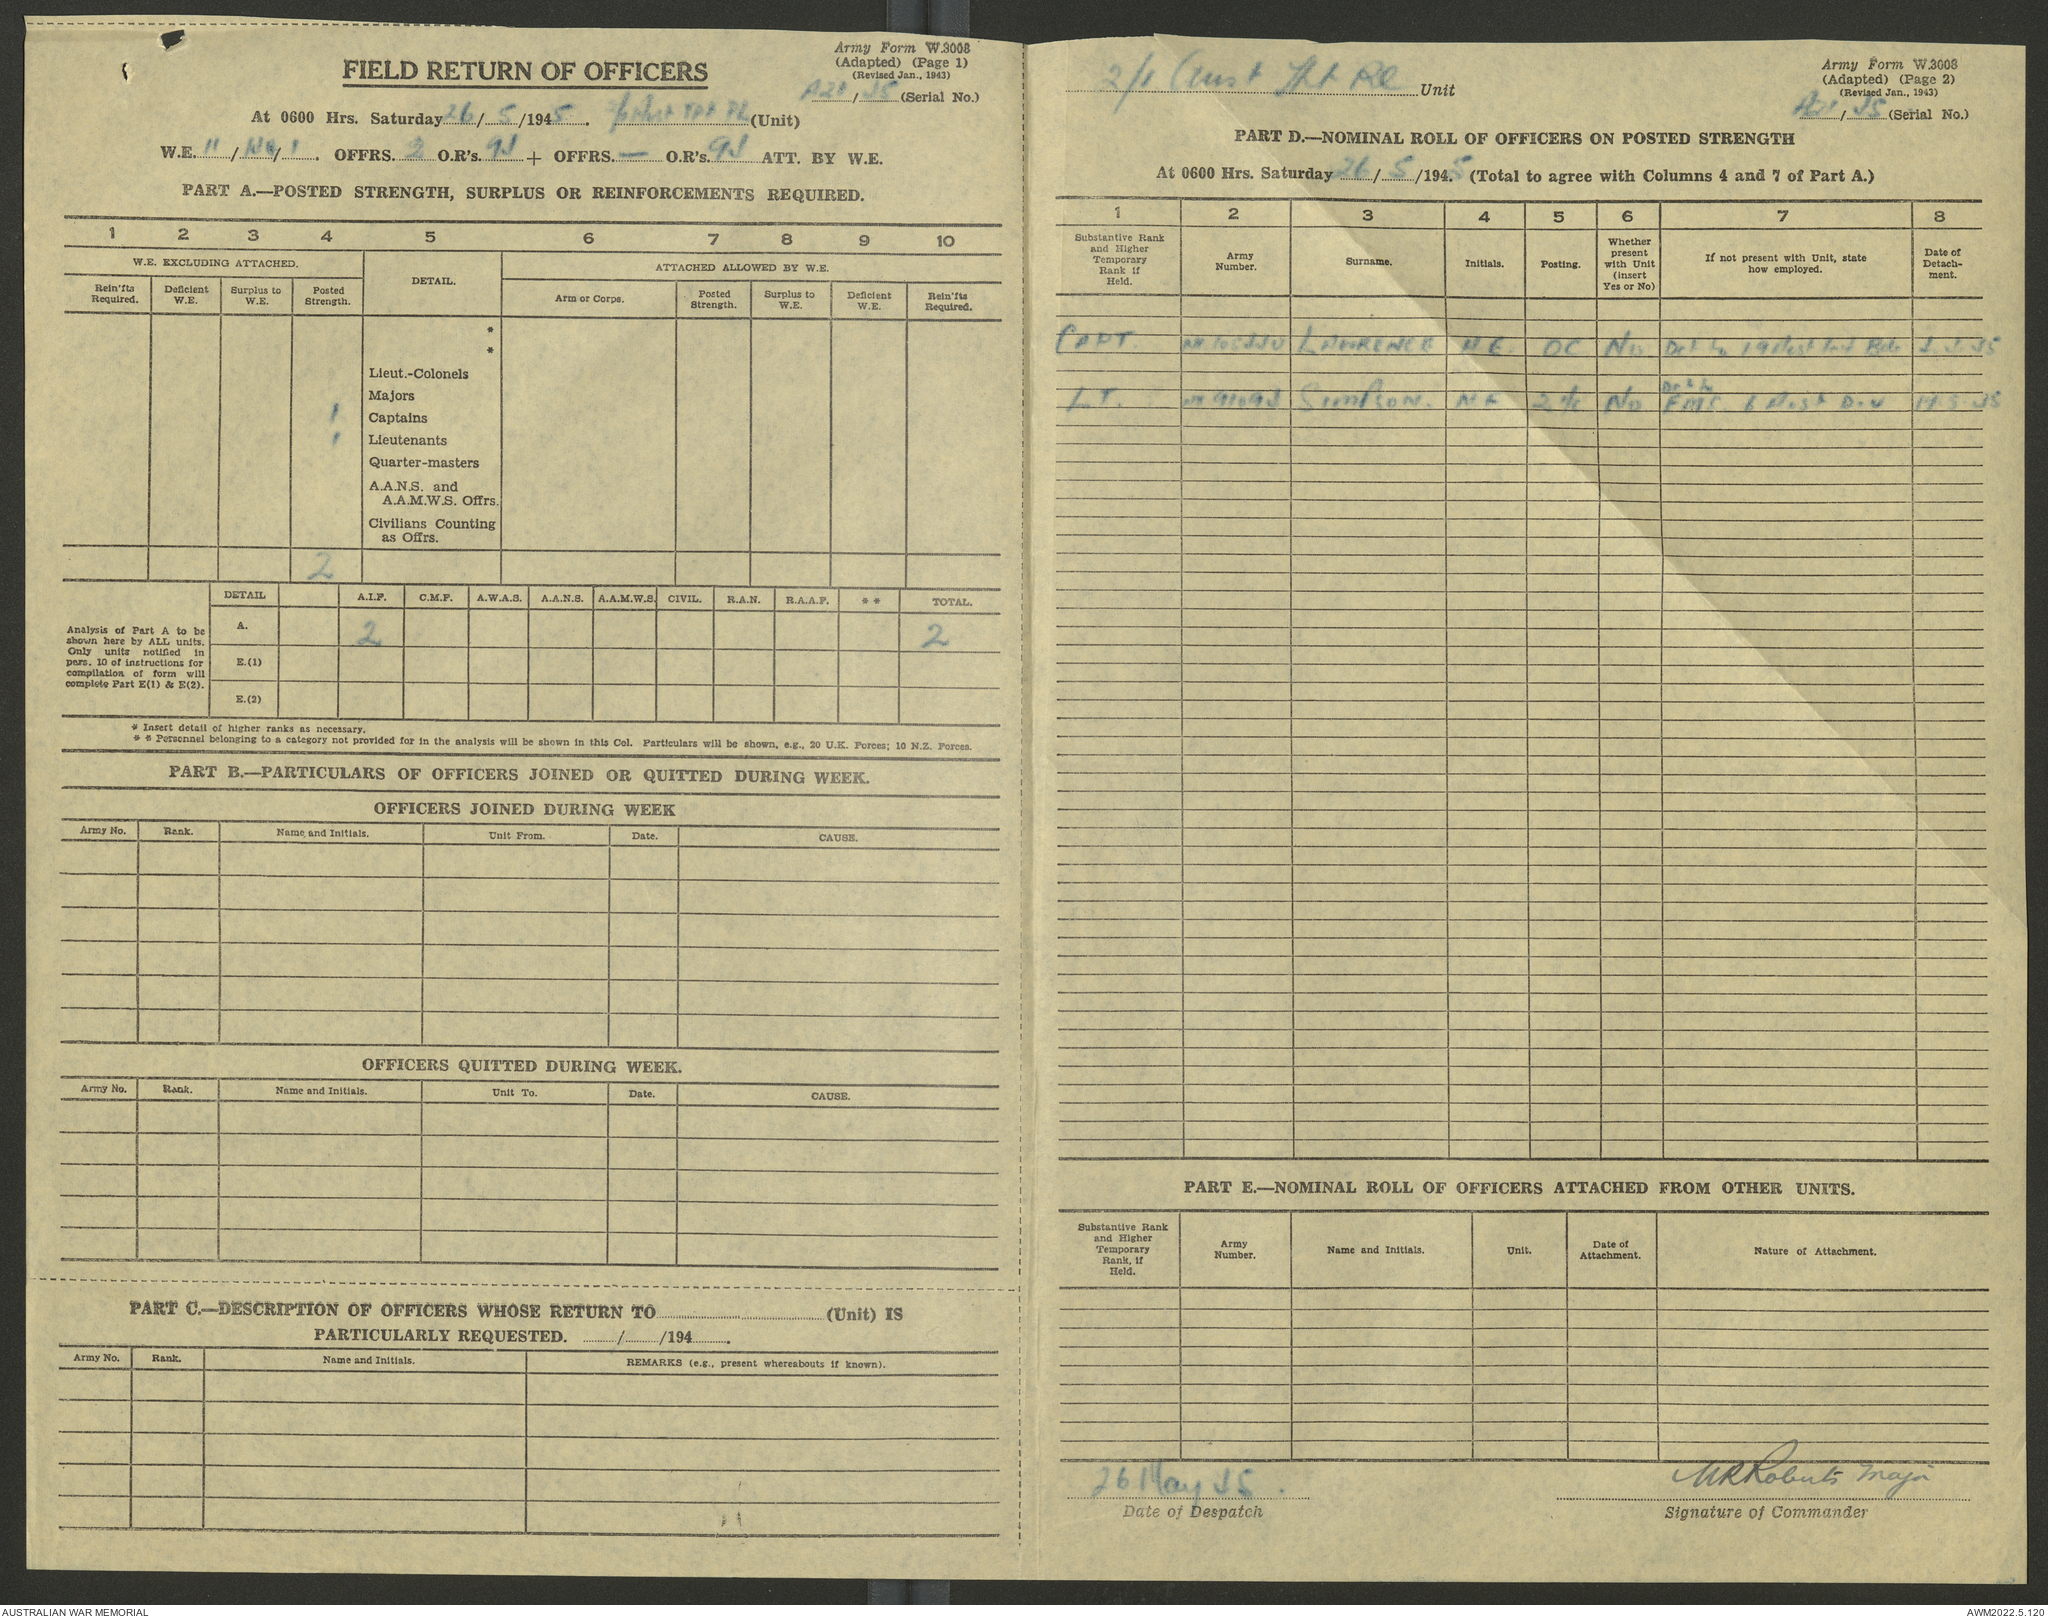 Army Form W.3008
(Adapted) (Page 1)
(Revised Jan., 1943)
FIELD RETURN OF OFFICERS
/45 (Serial No.)
At 0600 Hrs. Saturday 26/5/1945. (Unit)
W.E. 11/ /1. OFFRS. 2 O.R's. 94 + OFFRS. — O.R's. 94 ATT. BY W.E.
PART A.—POSTED STRENGTH, SURPLUS OR REINFORCEMENTS REQUIRED.
1 2 3 4 5 6 7 8 9 10
W.E. EXCLUDING ATTACHED. DETAIL. ATTACHED ALLOWED BY W.E.
Rein'fts Required. Deficient W.E. Surplus to W.E. Posted Strength. Arm or Corps. Posted Strength. Surplus to W.E. Deficient W.E. Rein'fts Required.
*
*
Lieut.-Colonels
Majors
1 Captains
1 Lieutenants
Quarter-masters
A.A.N.S. and
A.A.M.W.S. Offrs.
Civilians Counting
as Offrs.
2
DETAIL A.I.F. C.M.F. A.W.A.S. A.A.N.S. A.A.M.W.S. CIVIL. R.A.N. R.A.A.F. * * TOTAL.
Analysis of Part A to be
shown here by ALL units.
Only units notified in
para. 10 of instructions for
compilation of form will
complete Part E(1) & E(2).
A. 2 2
E.(1)
E.(2)
* Insert detail of higher ranks as necessary.
* * Personnel belonging to a category not provided for in the analysis will be shown in this Col. Particulars will be shown, e.g., 20 U.K. Forces; 10 N.Z. Forces.
PART B.—PARTICULARS OF OFFICERS JOINED OR QUITTED DURING WEEK.
OFFICERS JOINED DURING WEEK
Army No. Rank. Name and Initials. Unit From. Date. CAUSE.
OFFICERS QUITTED DURING WEEK.
Army No. Rank. Name and Initials. Unit To. Date. CAUSE.
PART C.—DESCRIPTION OF OFFICERS WHOSE RETURN TO (Unit) IS
PARTICULARLY REQUESTED. / /194 .
Army No. Rank. Name and Initials. REMARKS (e.g., present whereabouts if known).
2/1 Aust Unit
Army Form W.3008
(Adapted) (Page 2)
(Revised Jan., 1943)
/45 (Serial No.)
PART D.—NOMINAL ROLL OF OFFICERS ON POSTED STRENGTH
At 0600 Hrs. Saturday 26/5/1945 (Total to agree with Columns 4 and 7 of Part A.)
1 2 3 4 5 6 7 8
Substantive Rank and Higher Temporary Rank if Held. Army Number. Surname. Initials. Posting. Whether present with Unit (insert Yes or No) If not present with Unit, state how employed. Date of Detachment.
CAPT. LAWRENCE H.E. OC No Det to 19 Aust 45
Det to
LT. SIMPSON. 2 i/c No 6 Aust Div 5.45
PART E.—NOMINAL ROLL OF OFFICERS ATTACHED FROM OTHER UNITS.
Substantive Rank and Higher Temporary Rank, if Held. Army Number. Name and Initials. Unit. Date of Attachment. Nature of Attachment.
26 May 45.
Roberts Major
Date of Despatch
Signature of Commander
AUSTRALIAN WAR MEMORIAL
AWM2022.5.120